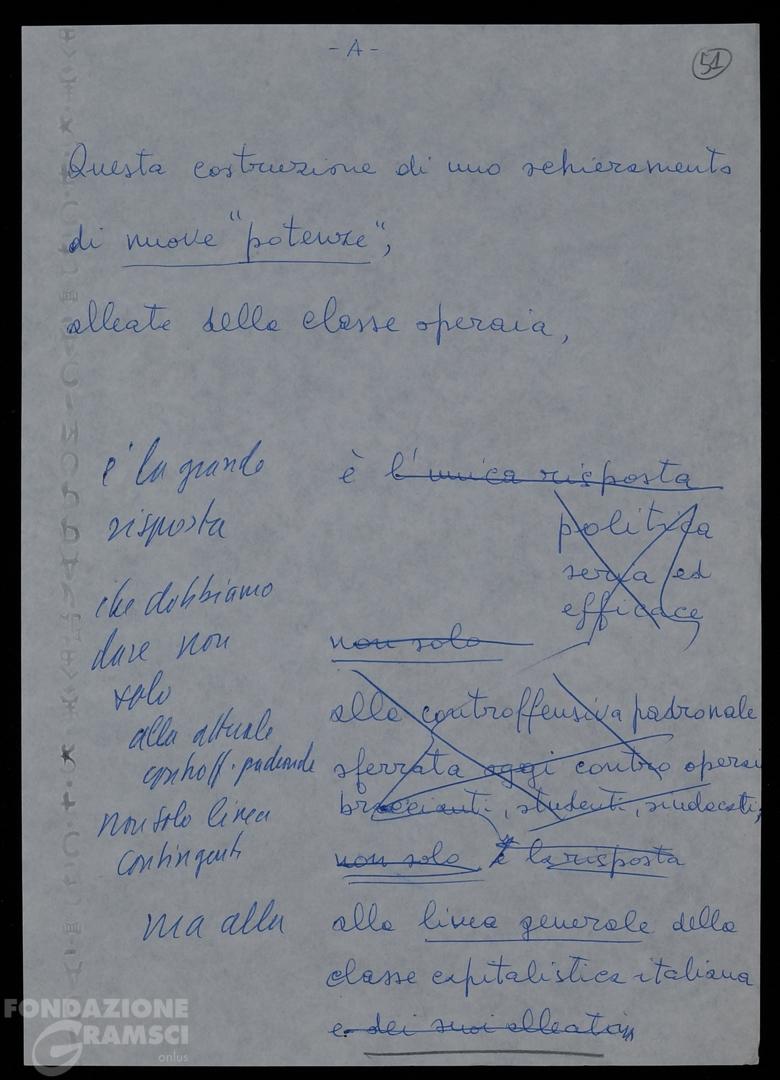 - A -
51
Questa costruzione di uno schieramento
di nuove "potenze",
alleate della classe operaia,
è la grande
risposta
che dobbiamo
dare non
solo
alla attuale
controff. padronale
non solo linea
contingenti
ma alla
è l'unica risposta
politica
seria ed
efficace
non solo
alla controffensiva padronale
sferrata oggi contro operai
braccianti, studenti, sindacati,
non solo è la risposta
alla linea generale della
classe capitalistica italiana
e dei suoi alleati
FONDAZIONE
GRAMSCI
onlus